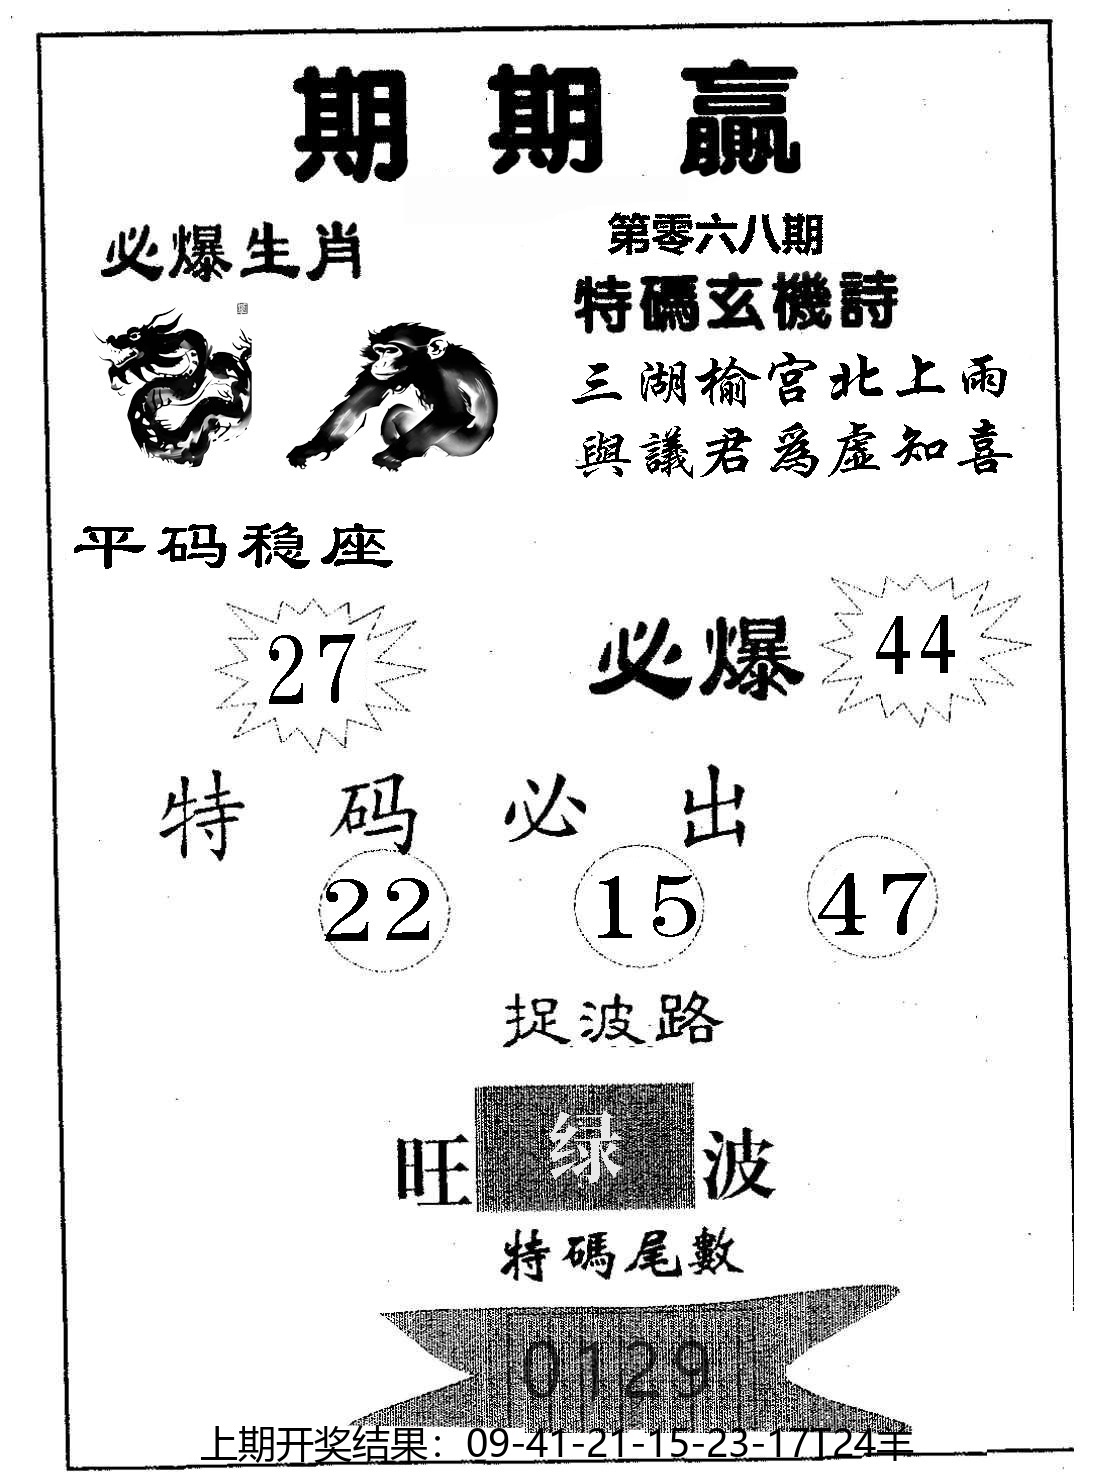 期期赢
必爆生肖
第零六八期
特碼玄機詩
三湖榆宫北上雨
與議君爲虚知喜
平码稳座
27
必爆
44
特码必出
22 15 47
捉波路
旺 绿 波
特碼尾數
0129
上期开奖结果：09-41-21-15-23-17T24羊